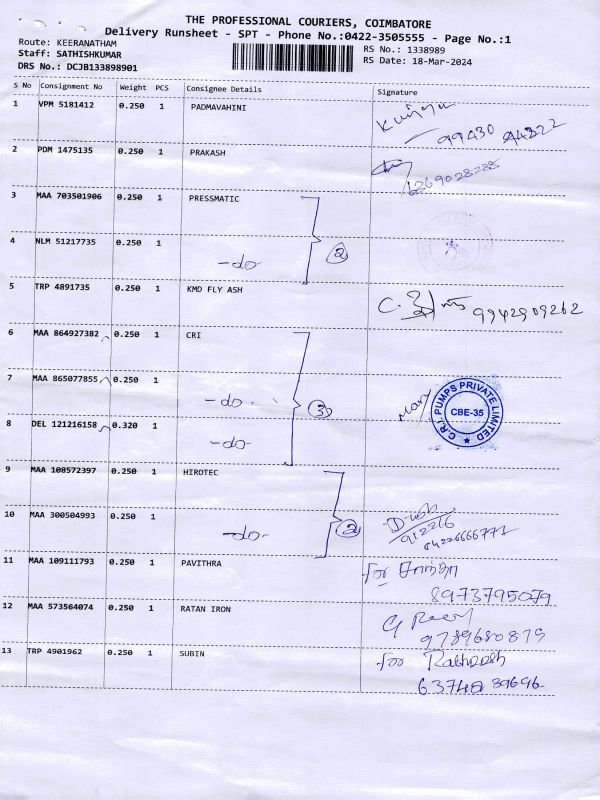 THE PROFESSIONAL COURIERS, COIMBATORE
Delivery Runsheet - SPT - Phone No.:0422-3505555 - Page No.:1
Route: KEERANATHAM
RS No.: 1338989
Staff: SATHISHKUMAR
RS Date: 18-Mar-2024
DRS No.: DCJB133898901
S No Consignment No Weight PCS Consignee Details Signature
1 VPM 5181412 0.250 1 PADMAVAHINI
99430 94322
2 PDM 1475135 0.250 1 PRAKASH
3 MAA 703501906 0.250 1 PRESSMATIC
4 NLM 51217735 0.250 1 -do- 2
5 TRP 4891735 0.250 1 KMD FLY ASH C. 9942909262
6 MAA 864927382 0.250 1 CRI
7 MAA 865077855 0.250 1 -do- 3
C.R.I. PUMPS PRIVATE LIMITED
CBE-35
8 DEL 121216158 0.320 1 -do-
9 MAA 108572397 0.250 1 HIROTEC
10 MAA 300504993 0.250 1 -do- 2
912216
11 MAA 109111793 0.250 1 PAVITHRA for சாந்தா
8973795079
12 MAA 573564074 0.250 1 RATAN IRON
9789680879
13 TRP 4901962 0.250 1 SUBIN for